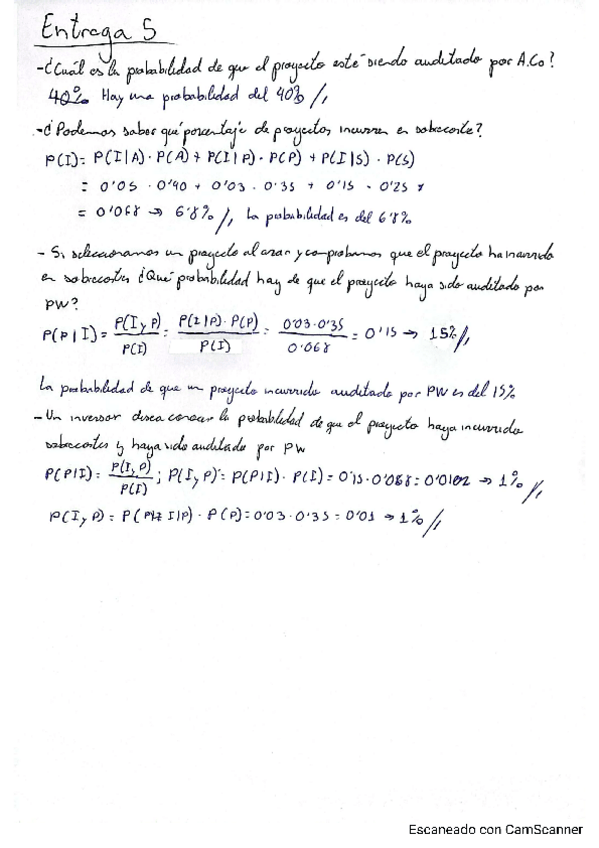 Entrega 5
- ¿Cuál es la probabilidad de que el proyecto esté siendo auditado por A.Co?
40% Hay una probabilidad del 40% //
- ¿Podemos saber qué porcentaje de proyectos incurren en sobrecoste?
P(I) = P(I|A) · P(A) + P(I|P) · P(P) + P(I|S) · P(S)
= 0'05 · 0'40 + 0'03 · 0'35 + 0'15 · 0'25
= 0'068 → 6'8% //, La probabilidad es del 6'8%
- Si seleccionamos un proyecto al azar y comprobamos que el proyecto ha incurrido
en sobrecostes ¿Qué probabilidad hay de que el proyecto haya sido auditado por
PW?
P(P|I) = P(I y P) / P(I) = P(I|P) · P(P) / P(I) = 0'03 · 0'35 / 0'068 = 0'15 → 15% //
La probabilidad de que un proyecto incurrido auditado por PW es del 15%
- Un inversor desea conocer la probabilidad de que el proyecto haya incurrido
sobrecostes y haya sido auditado por PW
P(P|I) = P(I, P) / P(I) ; P(I, P) = P(P|I) · P(I) = 0'15 · 0'068 = 0'0102 → 1% //
P(I y P) = P( I|P) · P(P) = 0'03 · 0'35 = 0'01 → 1% //
Escaneado con CamScanner